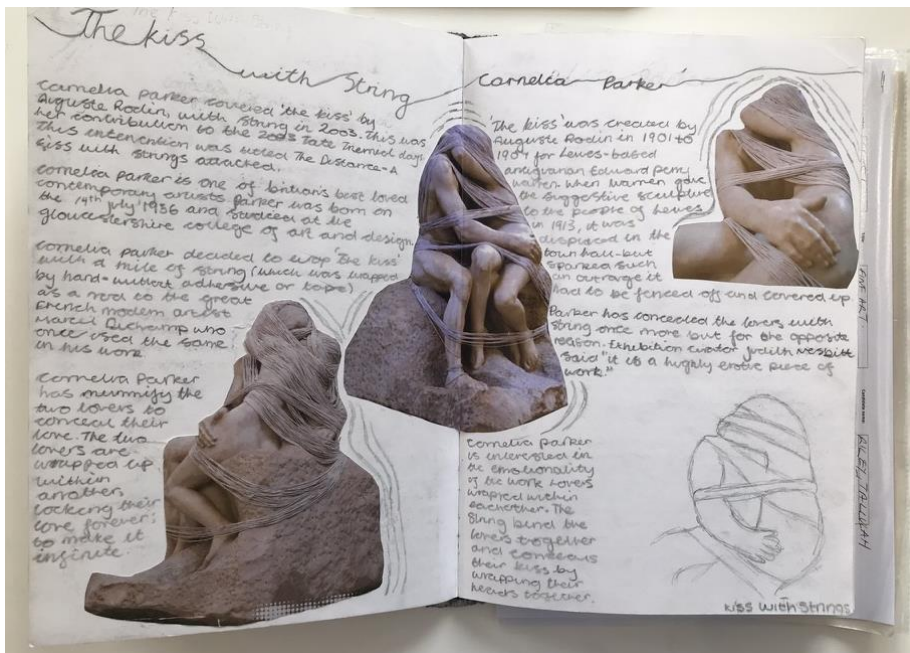 The kiss
with String
Cornelia Parker covered 'the kiss' by
Auguste Rodin, with string in 2003. This was
her contribution to the 2003 Tate Themed days
This intervention was titled The Distance-A
Kiss with strings attached.
Cornelia parker is one of britian's best loved
contemporary artists Parker was born on
the 14th july 1956 and studied at the
gloucestershire college of art and design.
Cornelia parker decided to wrap 'The kiss'
with a mile of string (which was wrapped
by hand-without adhesive or tape)
as a nod to the great
French modern artist
Marcel Duchamp who
once used the same
in his work
Cornelia Parker
has mummify the
two lovers to
conceal their
love. The two
lovers are
wrapped up
within
anothers
locking their
love forever:
to make it
infinite.
Cornelia Parker
'The kiss' was created by
Auguste Rodin in 1901 to
1904 for Lewes-based
antiquarian Edward Perry
warren when warren gave
the suggestive sculpture
to the people of Lewes
in 1913, it was
displaced in the
town hall-but
sparked such
an outrage it
had to be fenced off and covered up
Parker has concealed the lovers with
string once more but for the opposite
reason. Exhibition curator judith Nesbitt
said "it is a highly erotic piece of
work."
Cornelia parker
is interested in
the emotionality
of the work Lovers
wrapped within
eachother. The
String bind the
lovers together
and conceals
their kiss by
wrapping their
heads together.
Kiss with Strings
FINE ART